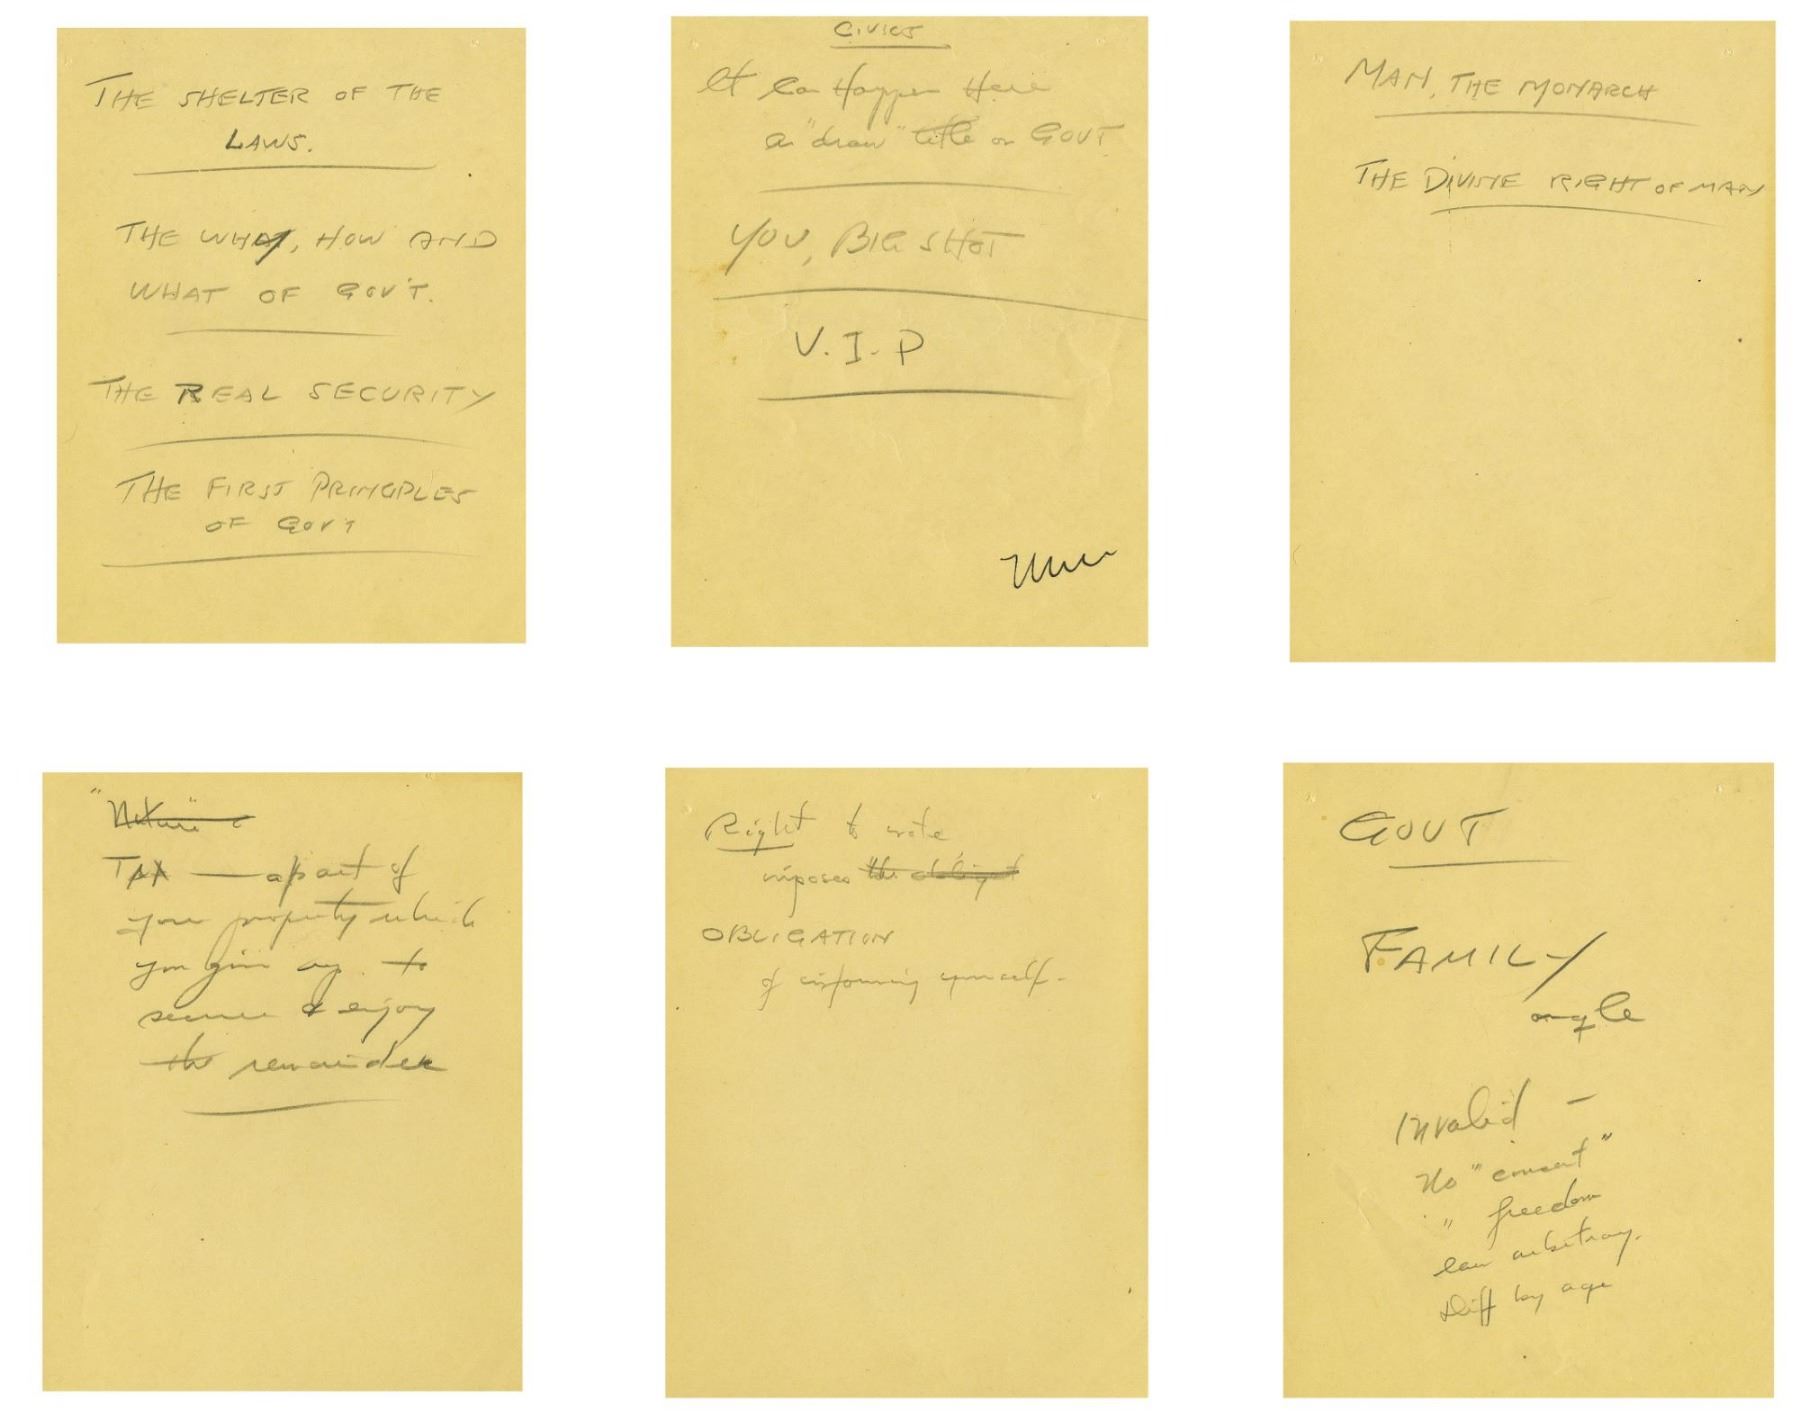 THE SHELTER OF THE
LAWS.
THE WHAT, HOW AND
WHAT OF GOV'T.
THE REAL SECURITY
THE FIRST PRINCIPLES
OF GOV'T
CIVICS
It Can Happen Here
a "draw" title on GOVT
YOU, BIG SHOT
V.I.P
MAN, THE MONARCH
THE DIVINE RIGHT OF MAN
TAX — a part of
your property which
you give to
secure & enjoy
the remainder
Right to vote
imposes the obligat
OBLIGATION
of informing yourself.
GOVT
FAMILY
angle
Invalid —
No "consent"
" freedom
law arbitrary.
Diff by age